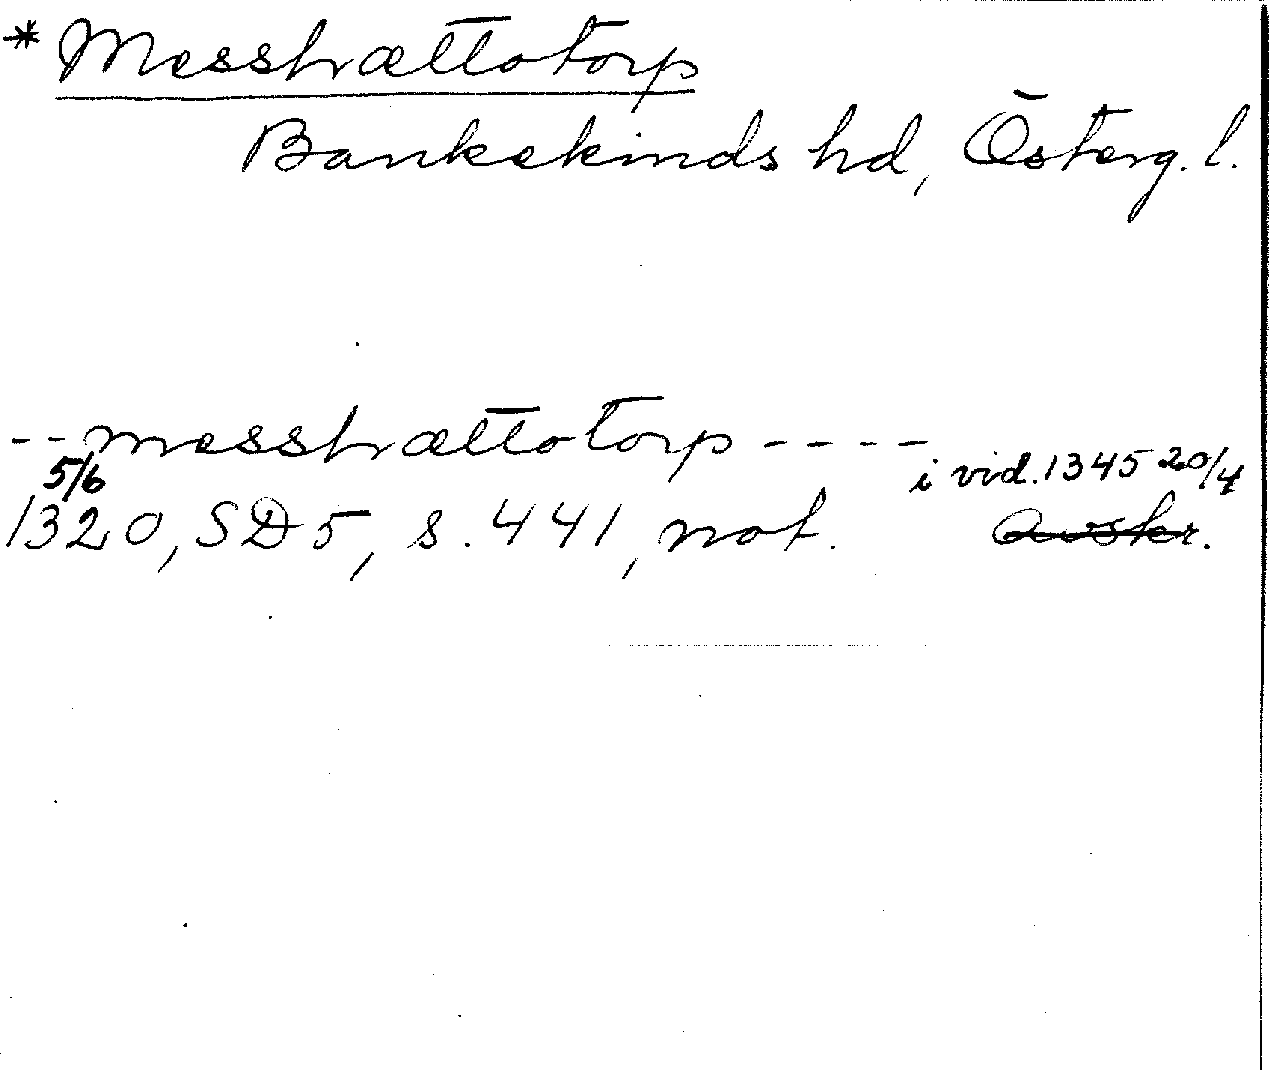 * Messhættotorp
Bankekinds hd, Österg. l.
--messhættotorp----
5/6 i vid. 1345 20/4
1320, SD 5, s. 441, not. Avskr.